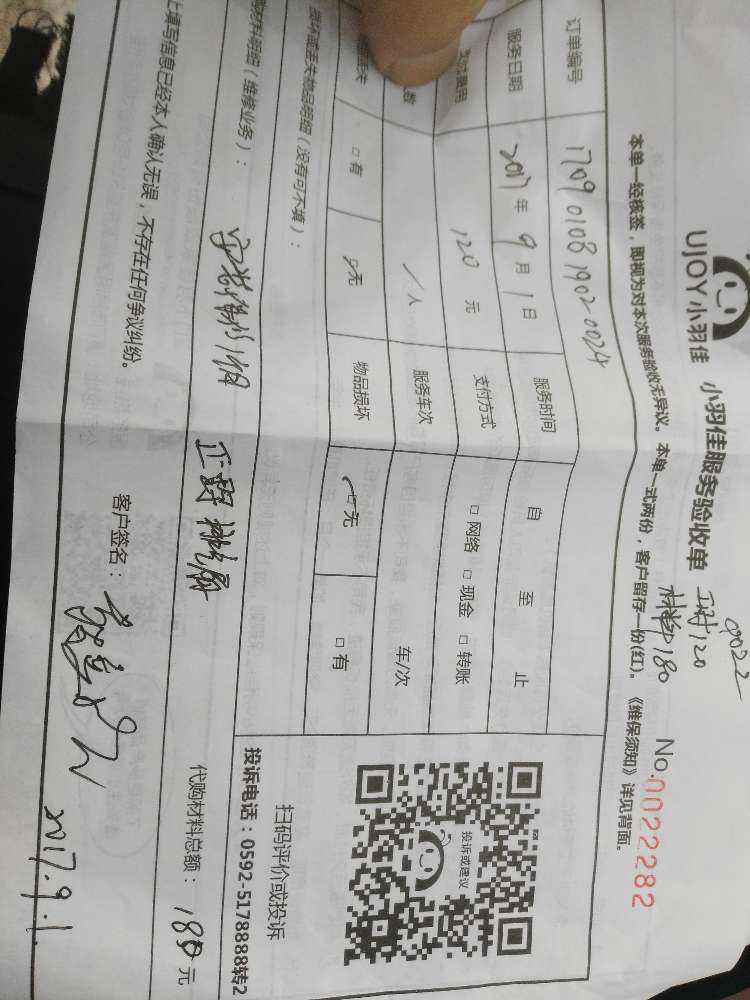 UJOY小羽佳 小羽佳服务验收单
9022
工时120
材料180
No.0022282
本单一经核签，即视为对本次服务验收无异议。本单一式两份，客户留存一份(红)。《维保须知》详见背面。
订单编号 17090108 1902-0024
服务日期 2017年9月1日 服务时间 自 至 止
费用 120元 支付方式 □网络 □现金 □转账
数 /人 服务车次 车/次
□有 □无 物品损坏 □无 □有
损坏或丢失物品明细（没有可不填）：
材料明细（维修业务）：
代购材料总额：180元
投诉或建议
扫码评价或投诉
投诉电话：0592-5178888转2
上填写信息已经本人确认无误，不存在任何争议纠纷。
客户签名：
2017.9.1.